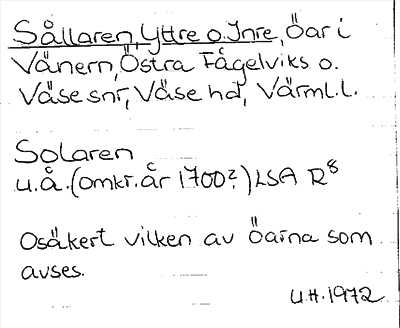 Sållaren, Yttre o. Inre, Öar i
Vänern, Östra Fågelviks o.
Väse snr, Väse hd, Värml. l.
Solaren
u.å. (omkr. år 1700?) LSA R8
Osäkert vilken av öarna som
avses.
U.H. 1972